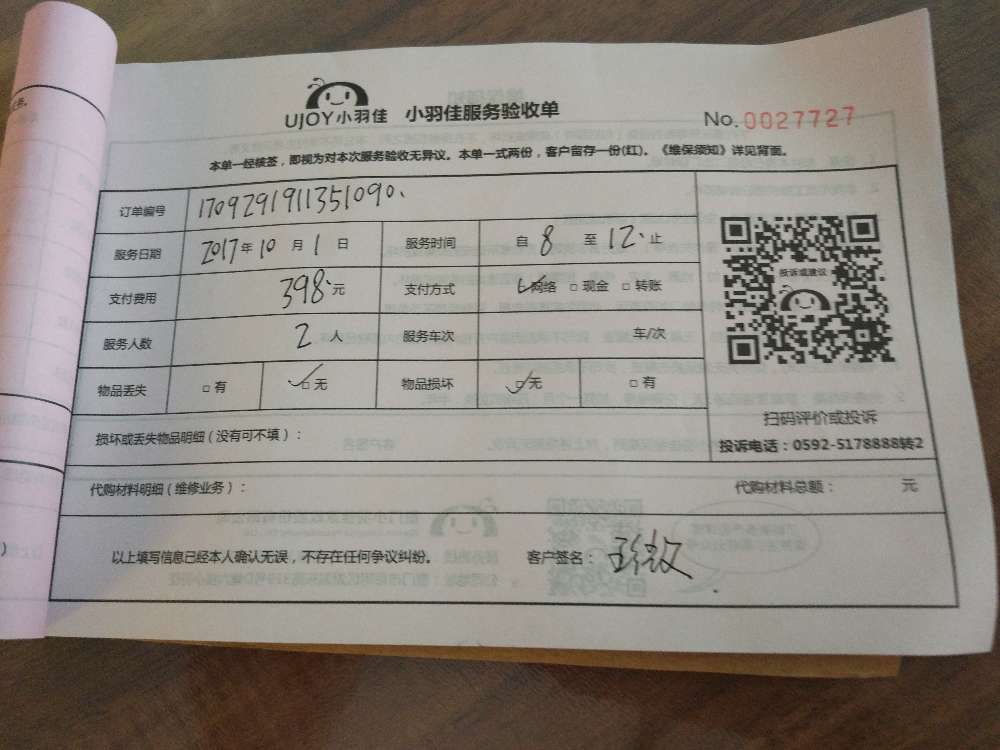 UJOY小羽佳 小羽佳服务验收单
No.0027727
本单一经核签，即视为对本次服务验收无异议。本单一式两份，客户留存一份(红)。《维保须知》详见背面。
订单编号 1709291911351090
服务日期 2017年10月1日 服务时间 自8至12止
支付费用 398元 支付方式 ☑网络 □现金 □转账
服务人数 2人 服务车次 车/次
物品丢失 □有 ☑无 物品损坏 ☑无 □有
投诉或建议
扫码评价或投诉
投诉电话：0592-5178888转2
损坏或丢失物品明细（没有可不填）：
代购材料明细（维修业务）： 代购材料总额： 元
以上填写信息已经本人确认无误，不存在任何争议纠纷。 客户签名：